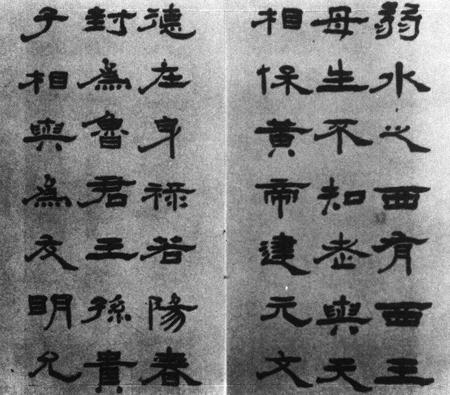 弱水之西有西王
母生不知老與天
相保黃帝建元文
德在身祿若陽春
封為魯君王孫貴
子相與為友明允